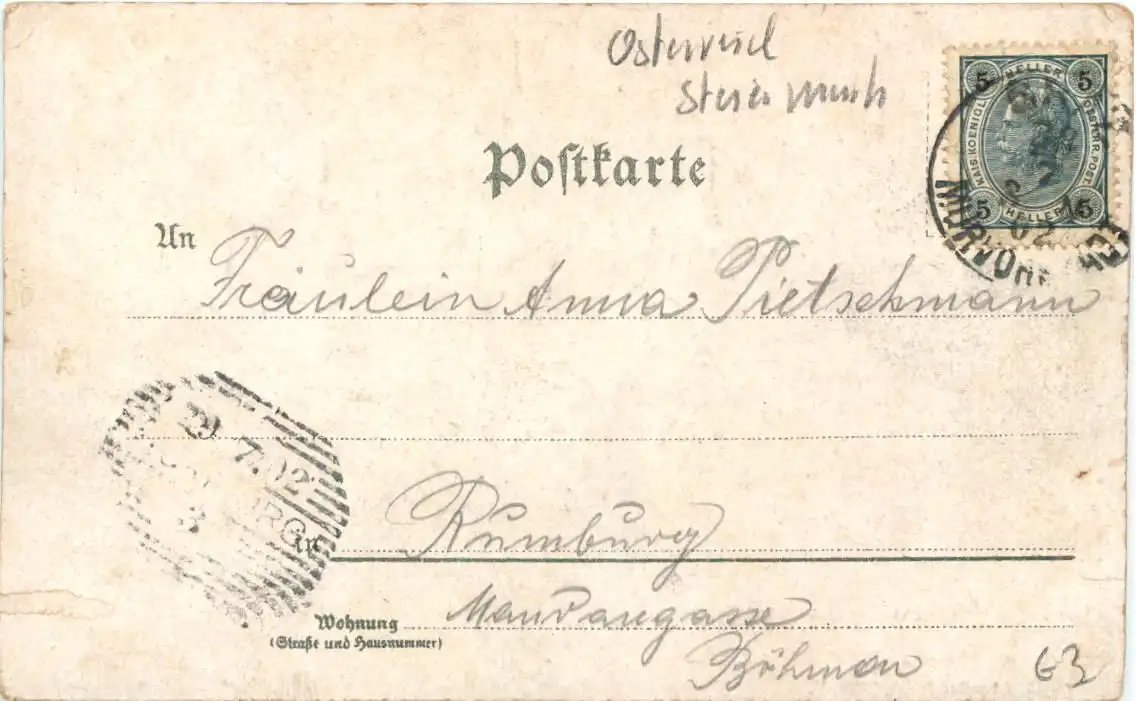 Steiermark
Postkarte
5 HELLER 5
KAIS. KOENIGL. OESTERR. POST
5 HELLER 5
02
An
Fräulein Anna Pietschmann
29 7.02
in Rumburg
Wohnung
(Straße und Hausnummer)
Mandaugasse
Böhmen
63